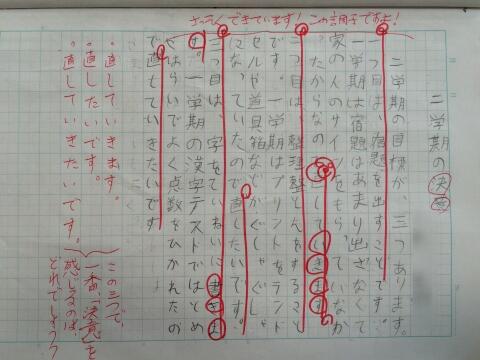 さっそくできています！この調子ですよ！
二学期の決意
二学期の目標が、三つあります。
一つ目は、宿題を出すことです。
一学期は宿題はあまり出さないで
家の人のサインをもらっていなか
ったからなの
していきます
二つ目は、整理整とんをすること
です。一学期はプリントをテント
セルや道具箱などがぐしゃぐしゃ
になっていたので直したいです。
三つ目は、字をていねいに書きま
す。一学期の漢字テストではとめ
やはらいでよく点数をひかれたの
で直していきたいです
・直していきます。
・直したいです。
・直していきたいです。
この三つで、
一番「決意」を
感じるのは、
どれでしょう？